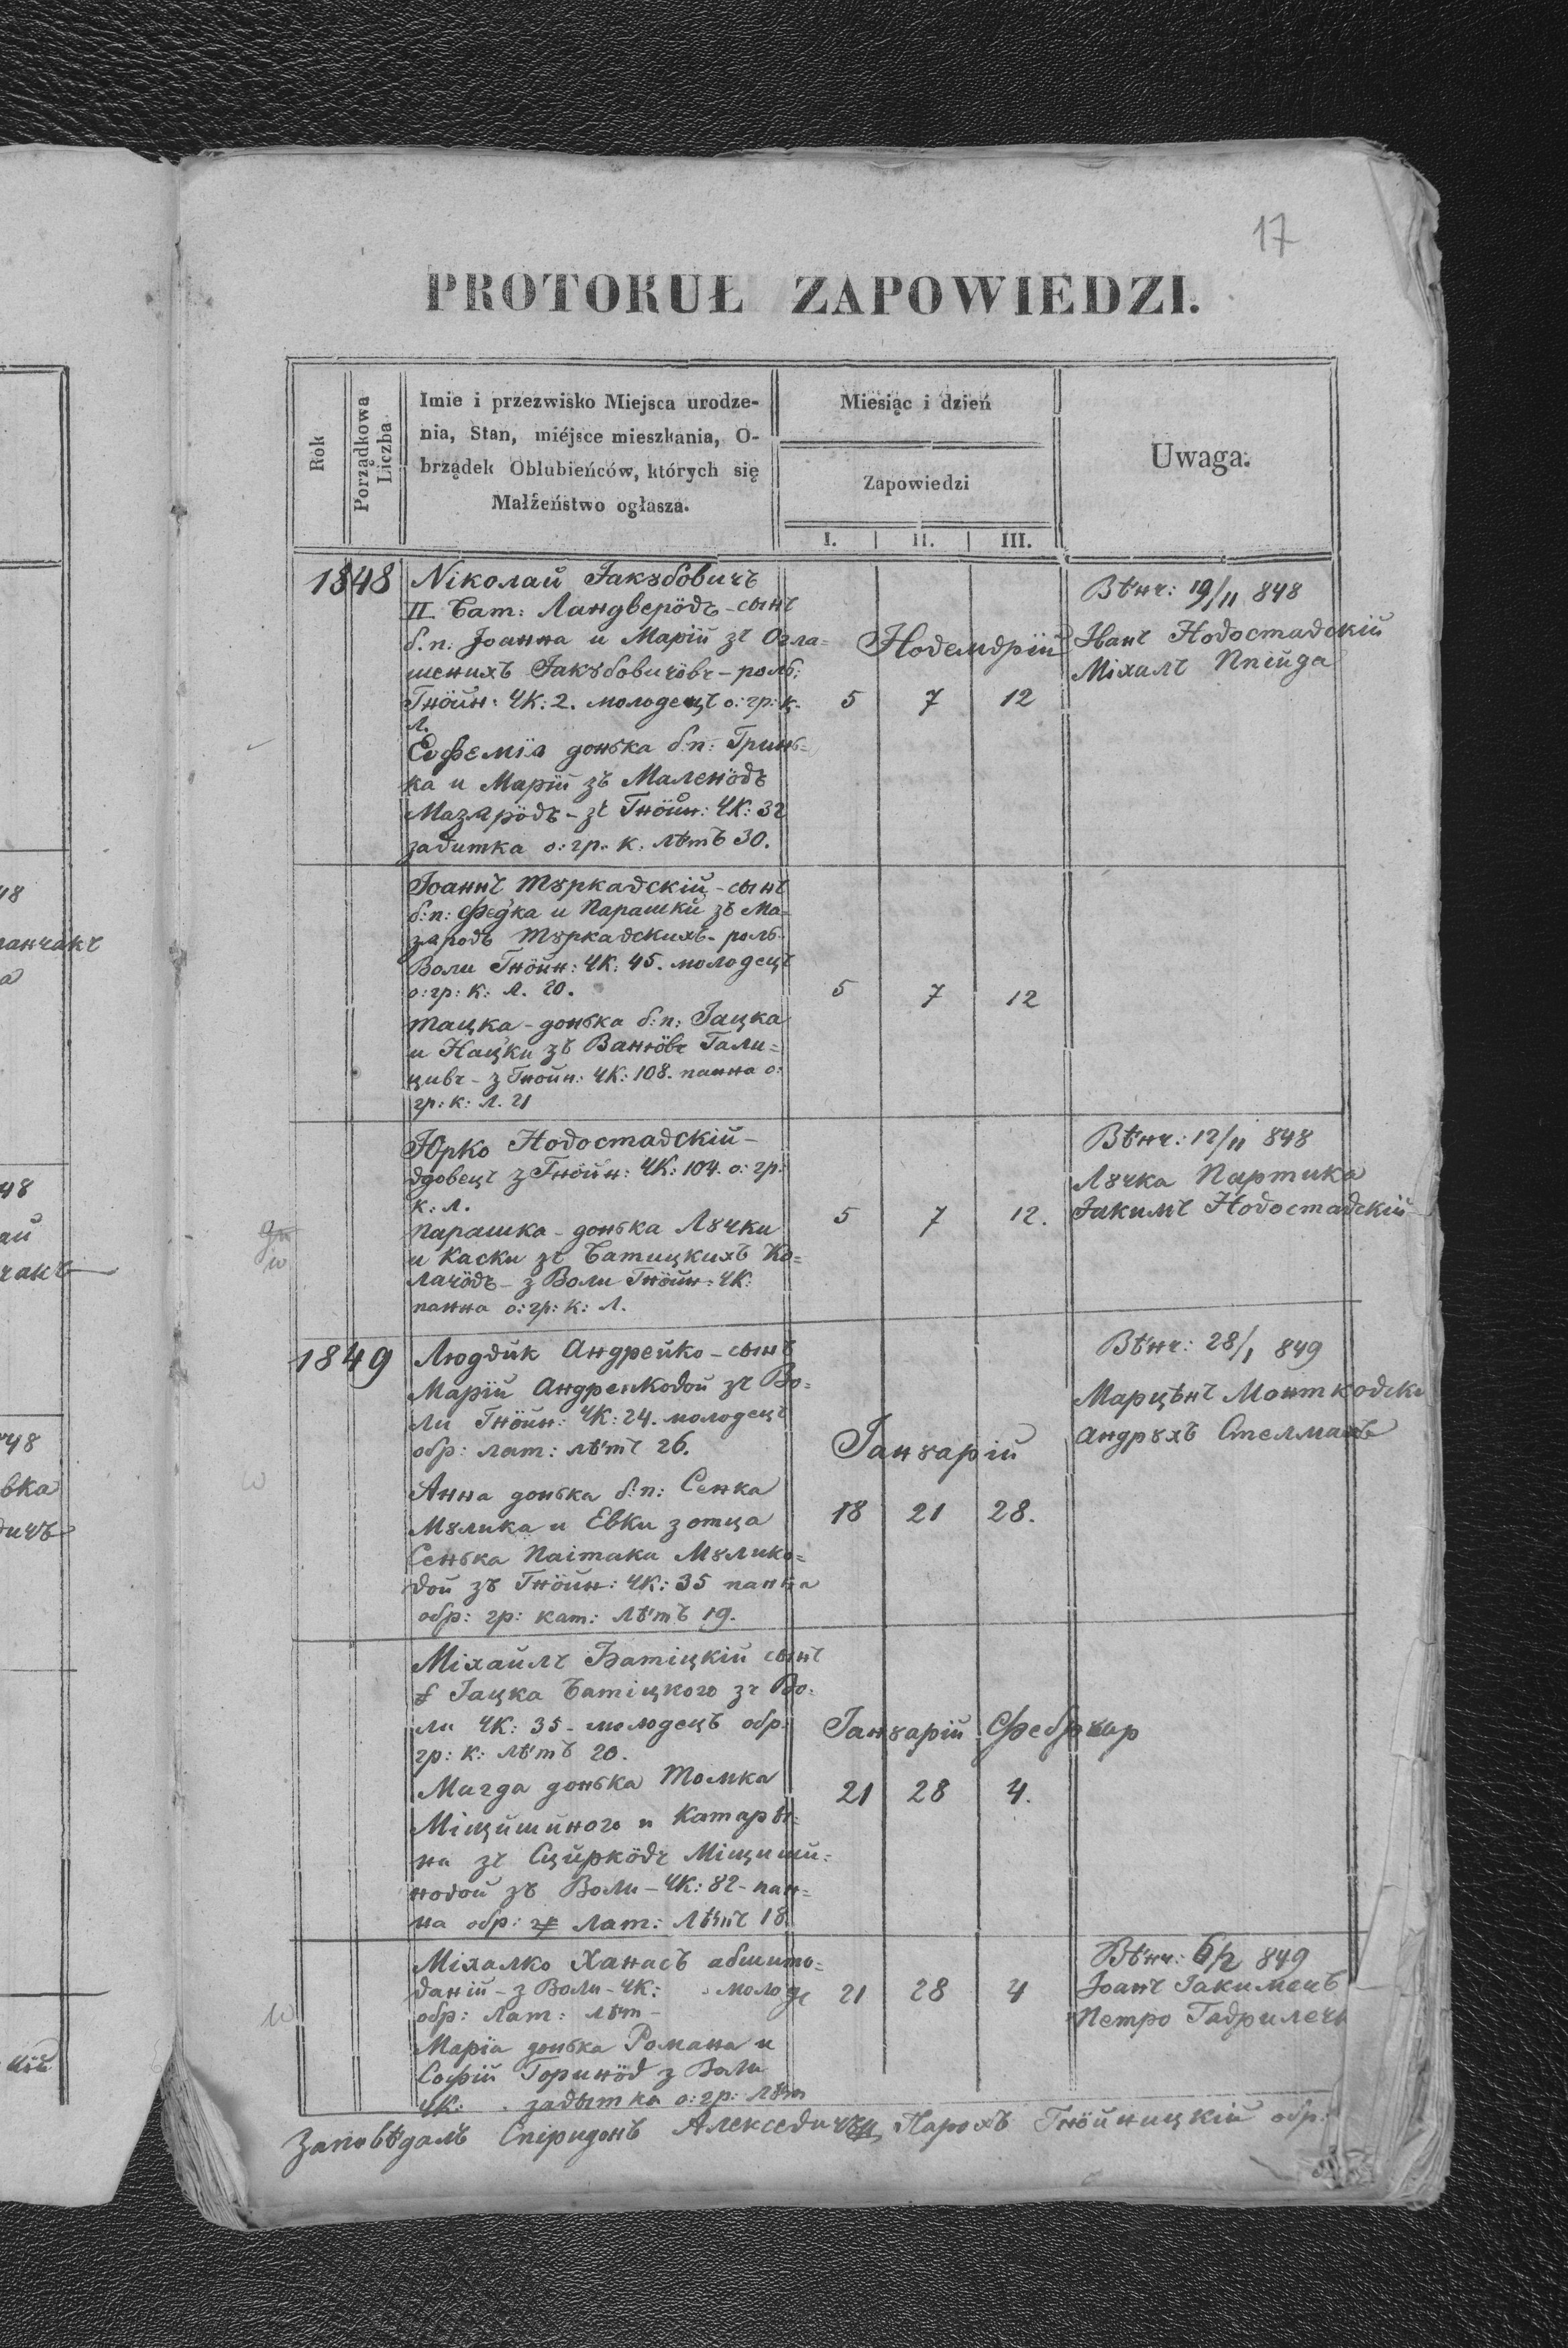 17
PROTOKUŁ ZAPOWIEDZI.
Rok
Porządkowa
Liczba
Imie i przezwisko Miejsca urodze-
nia, Stan, miéjsce mieszkania, O-
brządek Oblubieńców, których się
Małżeństwo ogłasza.
Miesiąc i dzień
Zapowiedzi
I. II. III.
Uwaga.
1848
Ніколай Јакꙋбовичъ
II Бат: Ландверöвъ - сынъ
б.п: Јоанна и Маріи зъ Огла=
шенихъ Јакꙋбовичöвъ - роль:
Гнöйн: ЧК: 2. молодецъ о: гр: к.
л.
Евфеміа донька б:п: Гринь=
ка и Маріи зъ Маленöвъ
Мазѧрöвъ - зъ Гнöйн: ЧК: 32
завитка о: гр. к. лѣтъ 30.
Новемвріи
5 7 12
Вѣнч: 19/11 848
Иванъ Новоставскій
Міхалъ
Јоаннъ Тꙋркавскій - сынъ
б:п: Федька и Парашки зъ Ма=
зяровъ Тꙋркавскихъ - роль.
Воли Гнöйн: ЧК: 45. молодецъ
о: гр: к: л. 20.
Тацка - донька б:п: Јацка
и Нацьки зъ Ванюöвъ Гали=
цивъ - з Гнойн: ЧК: 108. панна о:
гр: к: л. 21
5 7 12
Юрко Новоставскій -
вдовецъ з Гнöйн: ЧК: 104. о: гр:
к: л.
Парашка - донька Лꙋчки
и Каски зъ Батицкихъ Ко=
лачöвъ - з Воли Гнöйн: ЧК:
панна о: гр: к: л.
5 7 12.
Вѣнч: 12/11 848
Лꙋчка Партика
Јакимъ Новоставскій
1849
Людвик Андрейко - сынъ
Маріи Андрейковой зъ Во=
ли Гнöйн: ЧК: 24. молодецъ
обр: лат: лѣтъ 26.
Анна донька б:п: Сенка
Мꙋлика и Евки з отца
Сенька Паітака Мꙋлико=
вой зъ Гнöйн: ЧК: 35 панна
обр: гр: кат: лѣтъ 19.
Јанꙋаріи
18 21 28.
Вѣнч: 28/1 849
Марцѣнъ
Андрꙋхъ Стелмахъ
Міхаилъ Батіцкій сынъ
Јацка Батіцкого зъ Во=
ли ЧК: 35 - молодецъ обр:
гр: к: лѣтъ 20.
Магда донька Томка
Міщишиного и Катарѣ=
на зъ Сцйркöвъ Міщиши=
новой зъ Воли - ЧК: 82 - пан=
на обр: лат: лѣтъ 18
Јанꙋаріи Фебрꙋар
21 28 4.
Міхалко Ханасъ абшито=
ваній - з Воли - ЧК: молоде
обр: лат: лѣт -
Маріа донька Романа и
Софіи Горинöв з Воли
ЧК: завытка о: гр: лѣт
21 28 4
Вѣнч: 6/2 849
Јоанъ Јакимецъ
Петро Гаврилечъ
Заповѣдалъ Спіридонъ Парохъ Гнöйницкій обр: